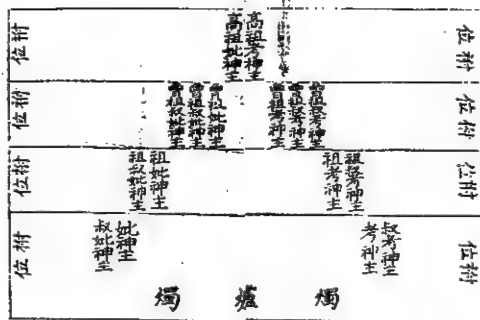 祔位
高祖考神主
高祖妣神主
祔位
祔位
曾祖叔考神主
曾祖叔考神主
曾祖考神主
曾祖妣神主
曾祖叔妣神主
曾祖叔妣神主
祔位
祔位
祖叔考神主
祖考神主
祖妣神主
祖叔妣神主
祔位
祔位
叔考神主
考神主
妣神主
叔妣神主
祔位
燭 爐 燭